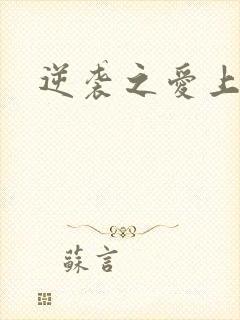 逆袭之愛上
蘇言